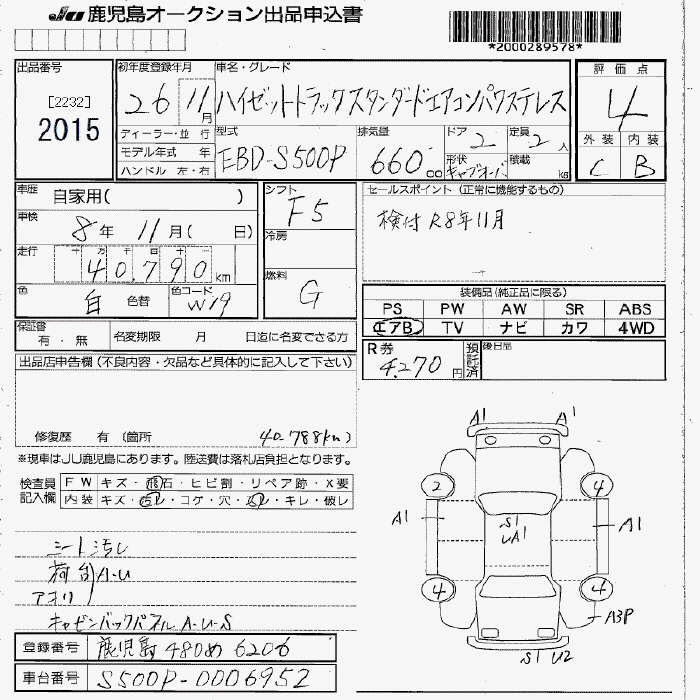 JU 鹿児島オークション出品申込書
*2000289578*
出品番号
[2232]
2015
初年度登録年月
26 11月
車名・グレード
ハイゼットトラックスタンダードエアコンパワステレス
評価点
4
外装 内装
C B
ディーラー・並 行
モデル年式 年
ハンドル 左・右
型式
EBD-S500P
排気量
660 cc
ドア 2
定員 2人
形状 キャブオーバ
積載 kg
車歴 自家用( )
車検 8年 11月( 日)
走行 十 万 千 百 十 一
40,790 km
色 白 色替
色コード W19
シフト F5
冷房
燃料 G
セールスポイント (正常に機能するもの)
検付 R8年11月
装備品(純正品に限る)
PS PW AW SR ABS
エアB TV ナビ カワ 4WD
保証書 有・無
名変期限 月 日迄に名変できる方
R券 4,270円
預託済
後日品
出品店申告欄(不良内容・欠品など具体的に記入して下さい)
修復歴 有 (箇所 40,788km)
※現車はJU鹿児島にあります。陸送費は落札店負担となります。
検査員記入欄
FW キズ・飛石・ヒビ割・リペア跡・X要
内装 キズ・ヨゴレ・コゲ・穴・スレ・キレ・破レ
シート汚レ
荷台 A-U
アオリ
キャビンバックパネル A-U-S
登録番号 鹿児島 480め 6206
車台番号 S500P-0006952
A1 A1
2 4
A1 S1 A1
UA1
4 4
A3P
S1 U2